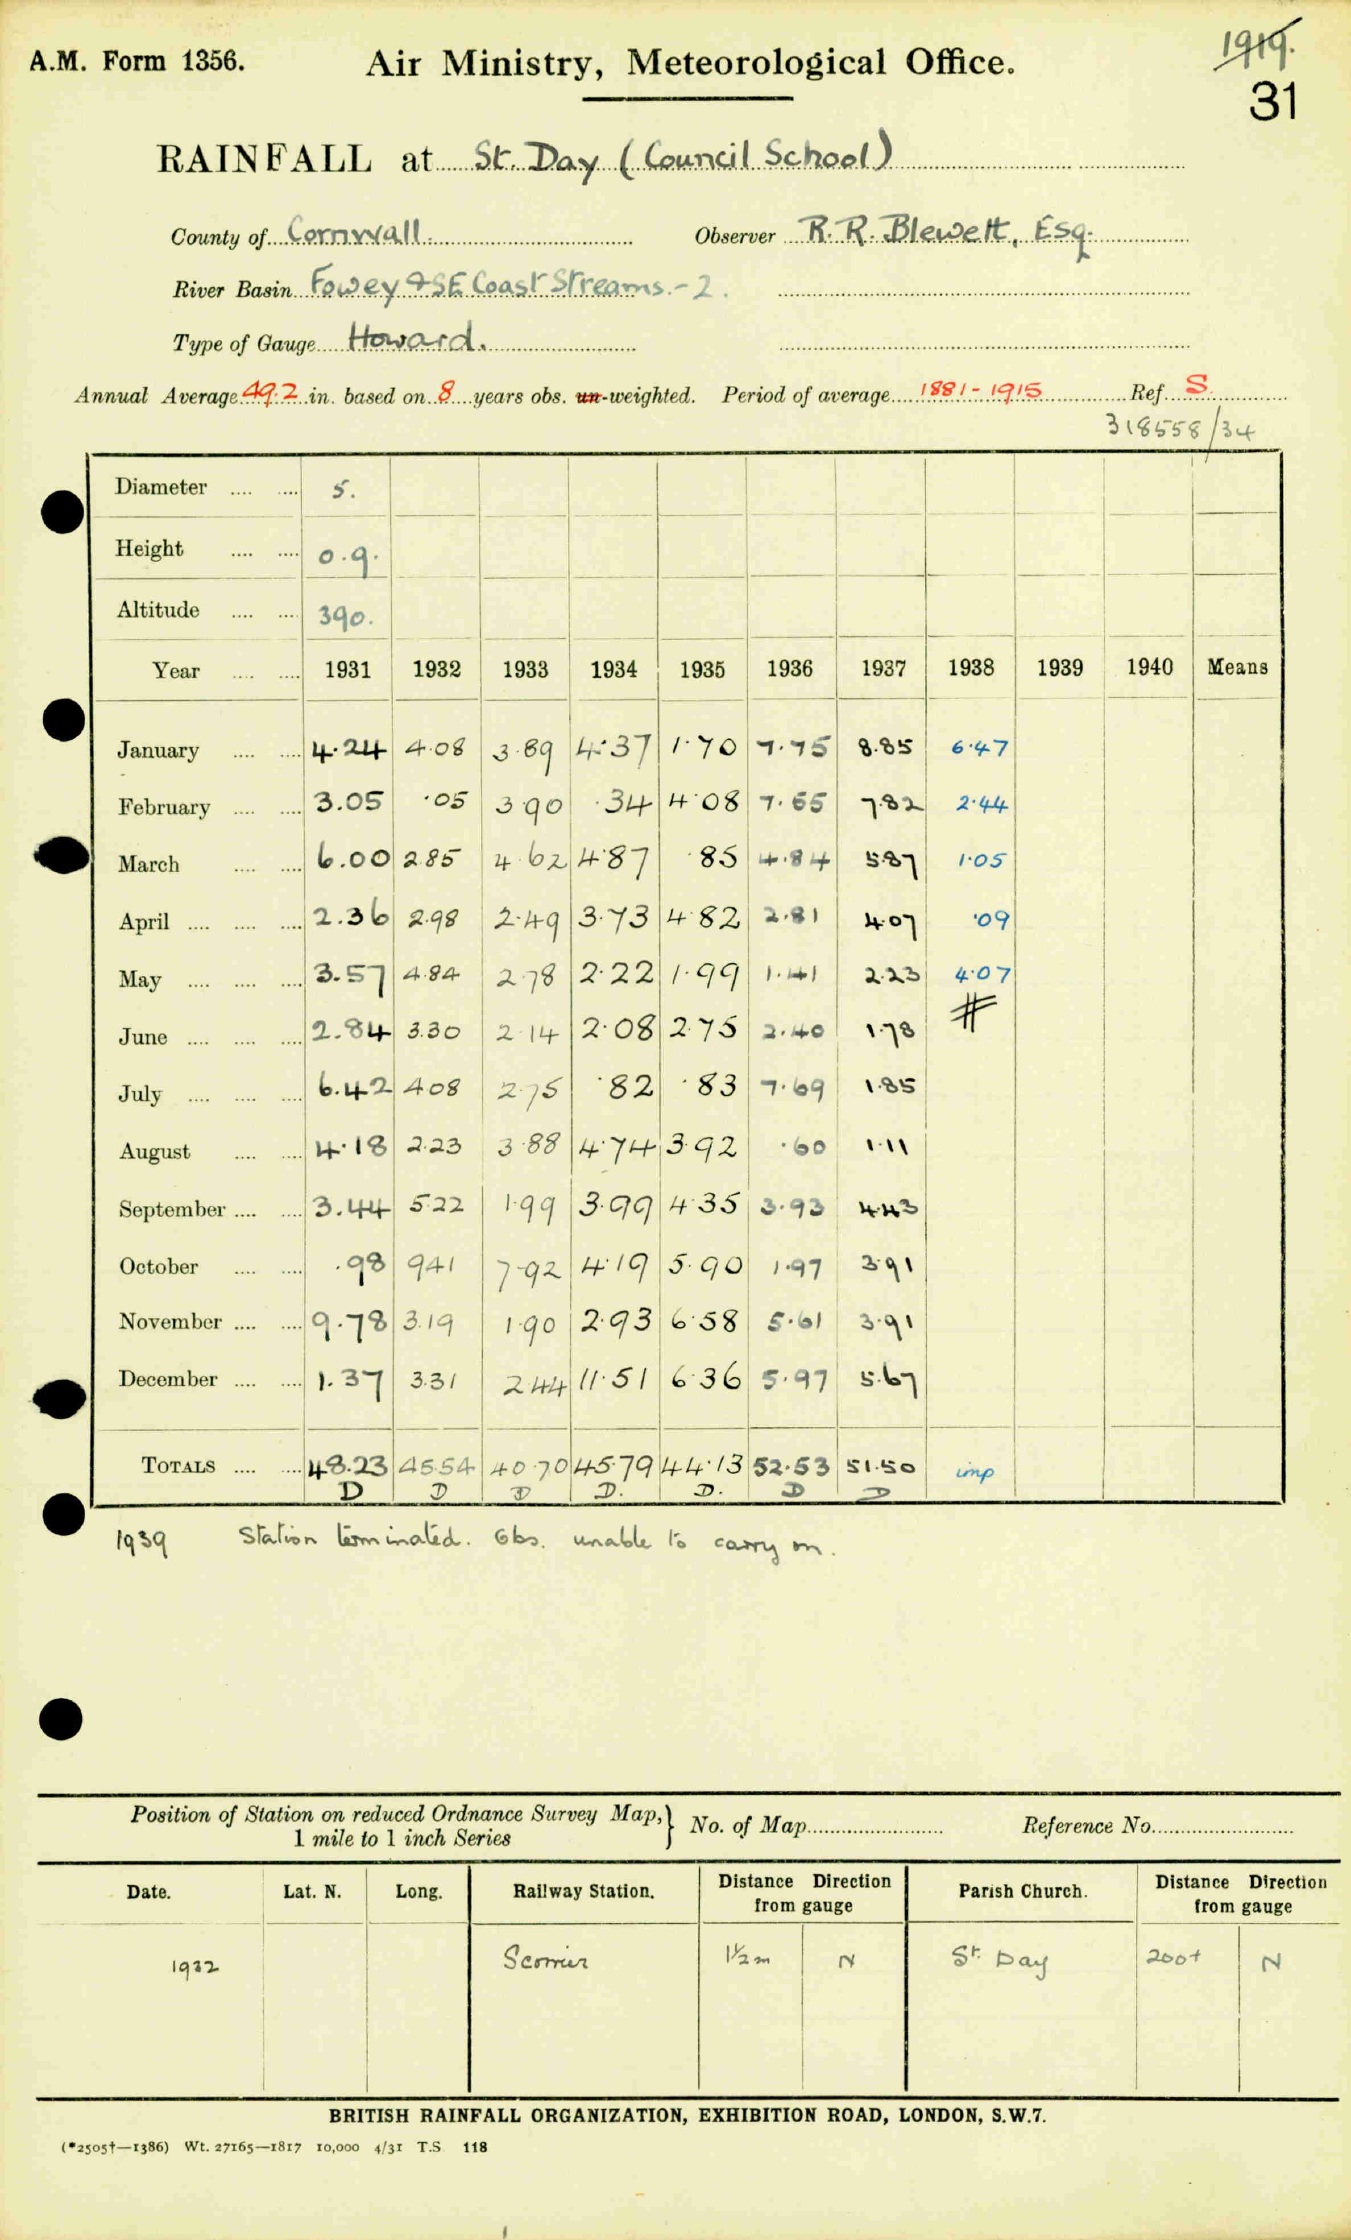 A.M. Form 1356.
Air Ministry, Meteorological Office.
1919.
31
RAINFALL at St. Day (Council School)
County of Cornwall. Observer R. R. Blewett, Esq.
River Basin Fowey & SE Coast Streams.-2.
Type of Gauge Howard.
Annual Average 49.2 in. based on 8 years obs. un-weighted. Period of average 1881-1915 Ref. S.
318558/34
Diameter .... .... 5.
Height .... .... 0.9.
Altitude .... .... 390.
Year .... .... 1931 1932 1933 1934 1935 1936 1937 1938 1939 1940 Means
January .... .... 4.24 4.08 3.89 4.37 1.70 7.75 8.85 6.47
February .... .... 3.05 .05 3.90 .34 4.08 7.65 7.82 2.44
March .... .... 6.00 2.85 4.62 4.87 .85 4.84 5.87 1.05
April .... .... .... 2.36 2.98 2.49 3.73 4.82 2.81 4.07 .09
May .... .... .... 3.57 4.84 2.78 2.22 1.99 1.41 2.23 4.07
June .... .... .... 2.84 3.30 2.14 2.08 2.75 2.40 1.78 #
July .... .... .... 6.42 4.08 2.75 .82 .83 7.69 1.85
August .... .... 4.18 2.23 3.88 4.74 3.92 .60 1.11
September .... .... 3.44 5.22 1.99 3.99 4.35 3.93 4.43
October .... .... .98 9.41 7.92 4.19 5.90 1.97 3.91
November .... .... 9.78 3.19 1.90 2.93 6.58 5.61 3.91
December .... .... 1.37 3.31 2.44 11.51 6.36 5.97 5.67
TOTALS .... .... 48.23 45.54 40.70 45.79 44.13 52.53 51.50 imp
D D D D. D. D D
1939 Station terminated. Obs. unable to carry on.
Position of Station on reduced Ordnance Survey Map, } No. of Map Reference No.
1 mile to 1 inch Series
Date. Lat. N. Long. Railway Station. Distance Direction from gauge Parish Church. Distance Direction from gauge
1932 Scorrier 1½ m N St. Day 200+ N
BRITISH RAINFALL ORGANIZATION, EXHIBITION ROAD, LONDON, S.W.7.
(*2505†—1386) Wt. 27165—1817 10,000 4/31 T.S. 118